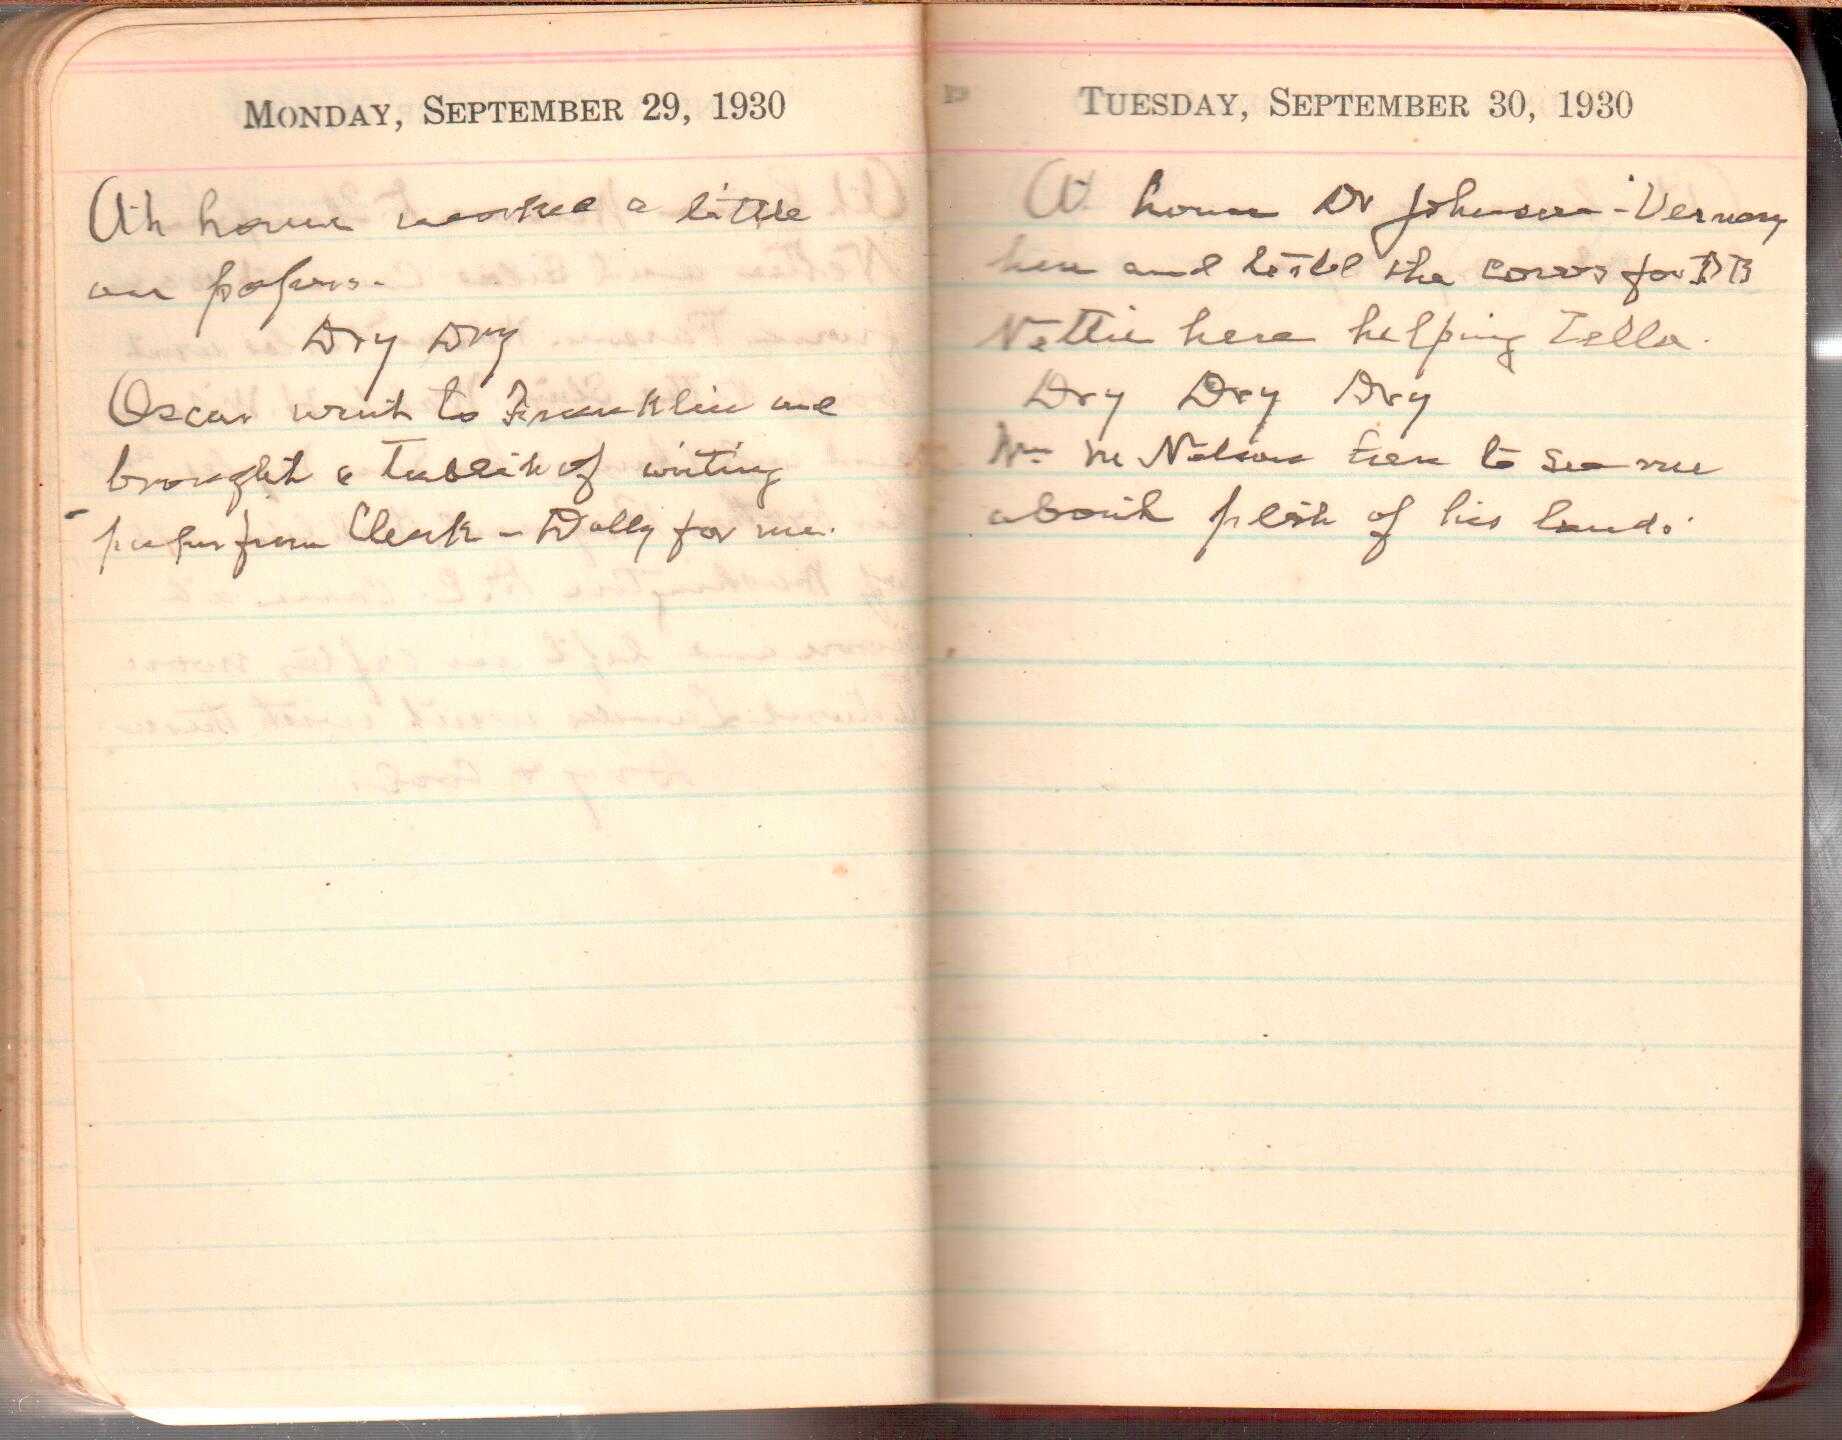 MONDAY, SEPTEMBER 29, 1930
At home worked a little
on papers.
Dry Dry
Oscar went to Franklin and
brought a tablet of writing
paper from Clerk - Dolly for me.
TUESDAY, SEPTEMBER 30, 1930
At home Dr Johnson - Vernon
here and tested the cows for TB
Nettie here helping Zella.
Dry Dry Dry
Wm M Nelson here to see me
about plat of his land.